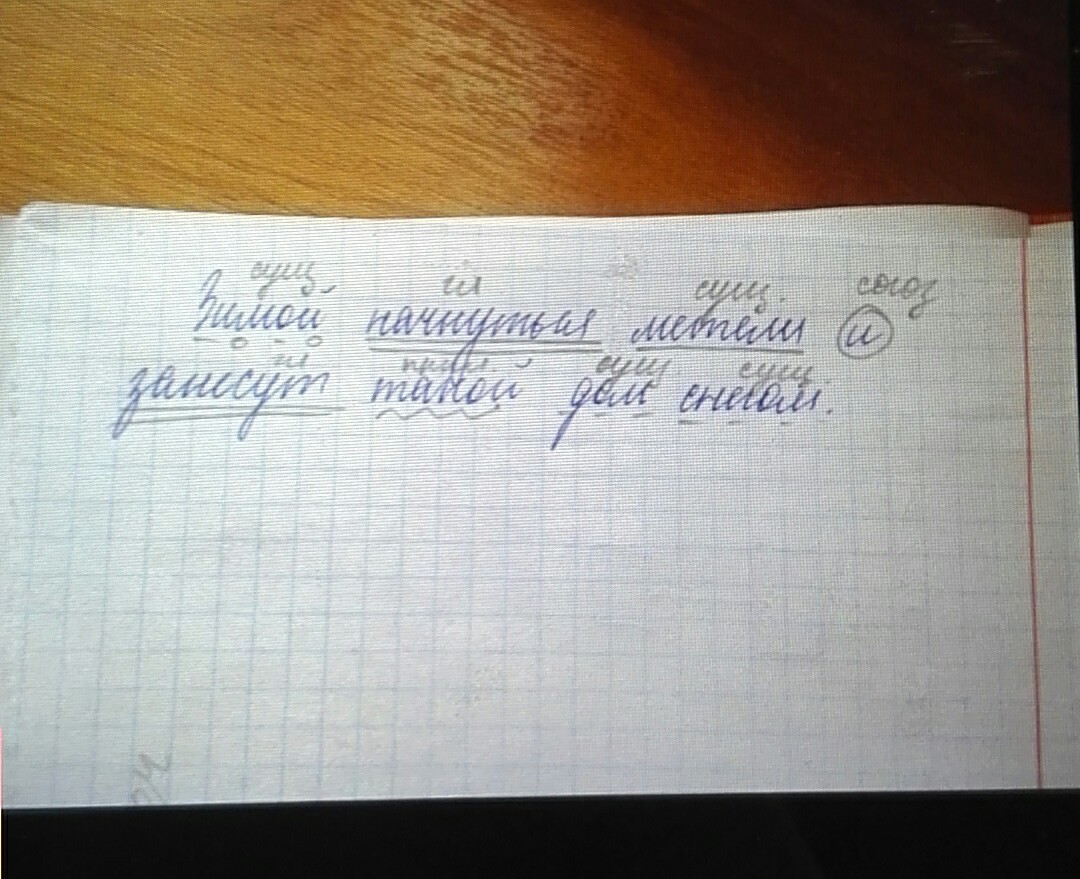 сущ гл сущ. союз
Зимой начнуться метели и
гл прил. сущ сущ
занесут такой дом снегом.